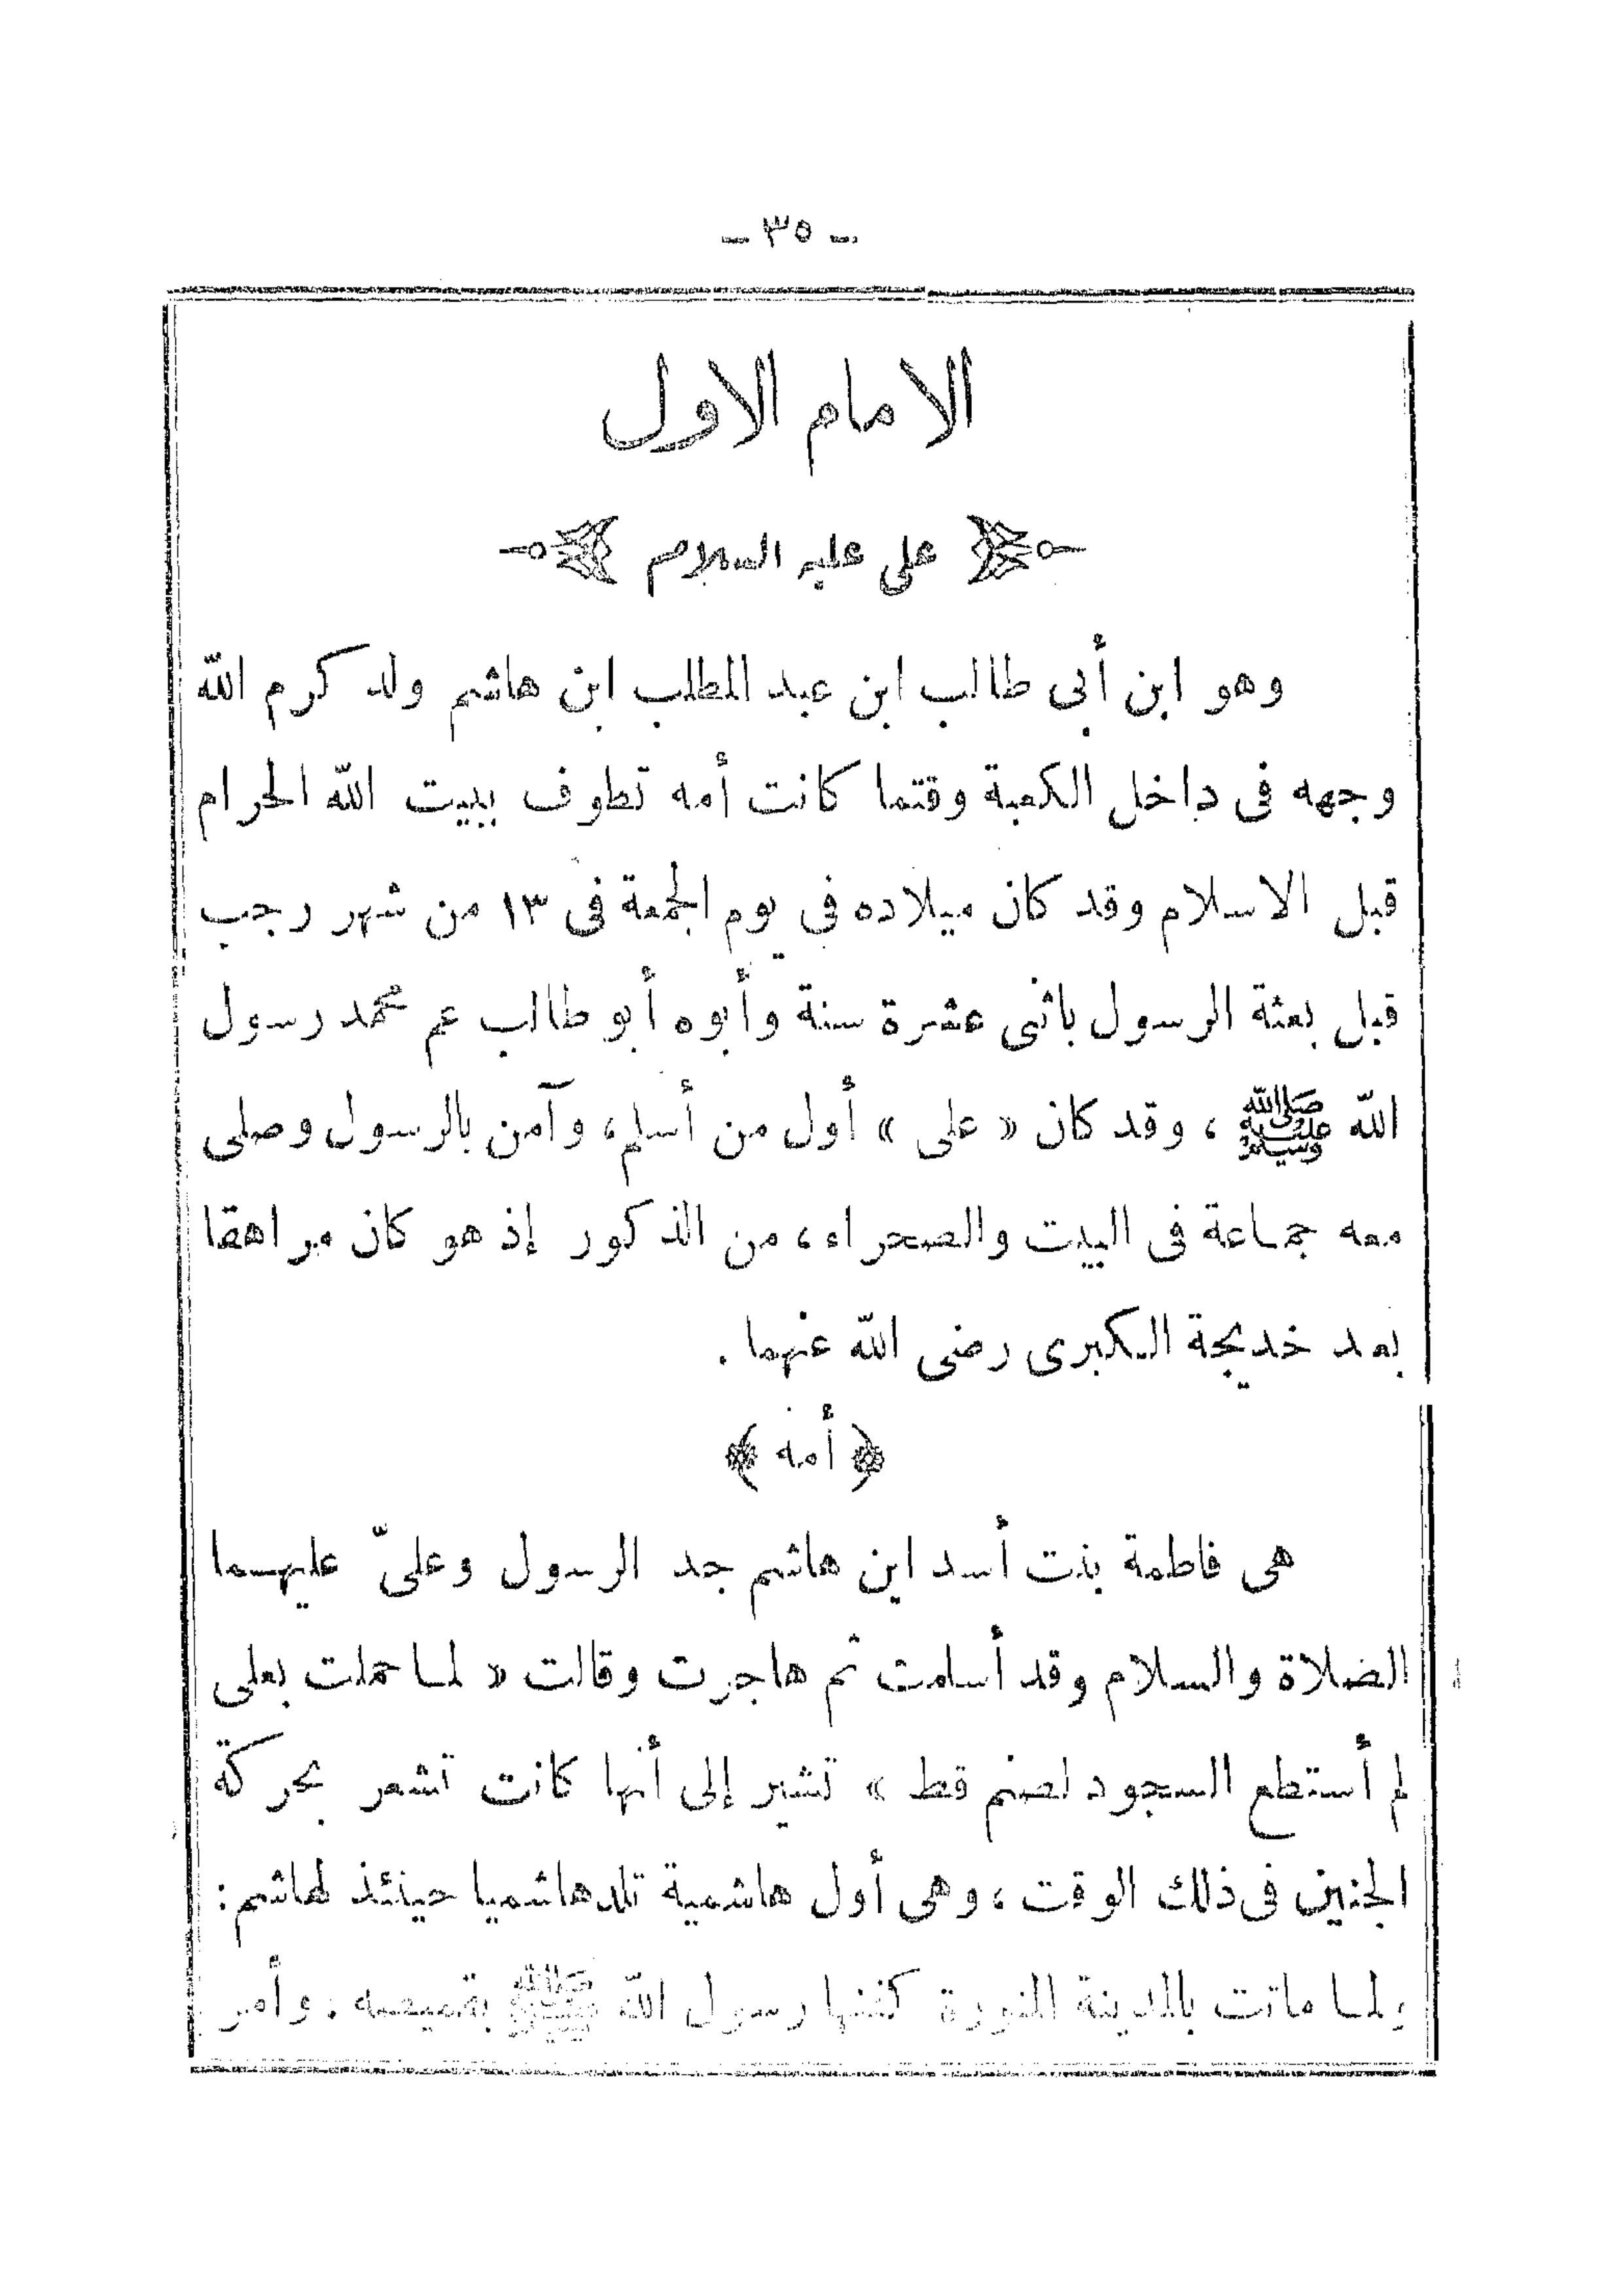 - ٣٥ -
الامام الاول
على عليه السلام
وهو ابن أبى طالب ابن عبد المطلب ابن هاشم ولد كرم الله
وجهه فى داخل الكعبة وقتما كانت أمه تطوف ببيت الله الحرام
قبل الاسلام وقد كان ميلاده فى يوم الجمعة فى ١٣ من شهر رجب
قبل بعثة الرسول باثنى عشرة سنة وأبوه أبو طالب عم محمد رسول
الله ﷺ ، وقد كان « على » أول من أسلم، وآمن بالرسول وصلى
معه جماعة فى البيت والصحراء، من الذكور إذ هو كان مراهقا
بعد خديجة الكبرى رضى الله عنهما .
﴿ أمه ﴾
هى فاطمة بنت أسد ابن هاشم جد الرسول وعلىّ عليهما
الضلاة والسلام وقد أسلمت ثم هاجرت وقالت « لما حملت بعلى
لم أستطع السجود لصنم قط » تشير إلى أنها كانت تشعر بحركة
الجنين فى ذلك الوقت ، وهى أول هاشمية تلد هاشميا حينئذ لهاشم :
ولما ماتت بالمدينة المنورة كفنها رسول الله ﷺ بقميصه . وأمر